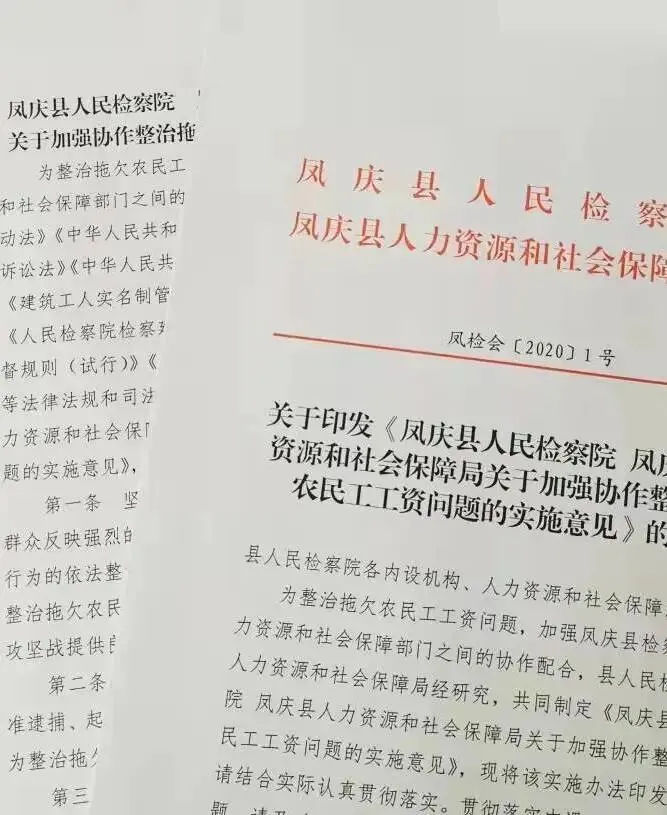 凤庆县人民检察院
关于加强协作整治拖
为整治拖欠农民工
和社会保障部门之间的
动法》《中华人民共和
诉讼法》《中华人民共
《建筑工人实名制管
《人民检察院检察建
督规则（试行）》《
等法律法规和司法
力资源和社会保障
题的实施意见》，
第一条 坚
群众反映强烈的
行为的依法整
整治拖欠农民
攻坚战提供良
第二条
准逮捕、起
为整治拖欠
第三
凤庆县人民检察
凤庆县人力资源和社会保障
凤检会〔2020〕1号
关于印发《凤庆县人民检察院 凤庆
资源和社会保障局关于加强协作整
农民工工资问题的实施意见》的
县人民检察院各内设机构、人力资源和社会保障
为整治拖欠农民工工资问题，加强凤庆县检察
力资源和社会保障部门之间的协作配合，县人民检
人力资源和社会保障局经研究，共同制定《凤庆县
院 凤庆县人力资源和社会保障局关于加强协作整
民工工资问题的实施意见》，现将该实施办法印发
请结合实际认真贯彻落实。贯彻落实中遇
题，请及